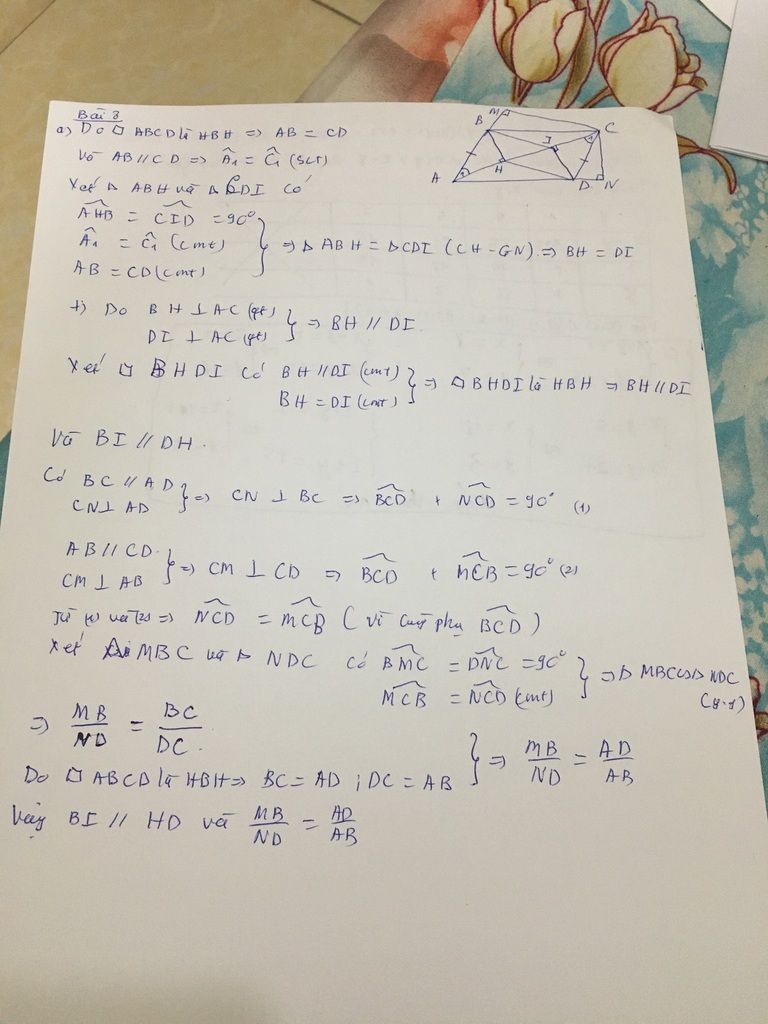 Bài 3
a) Do □ ABCD là HBH => AB = CD
Và AB // CD => Â₁ = Ĉ₁ (SLT)
Xét Δ ABH và Δ CDI có
AHB = CID = 90°
Â₁ = Ĉ₁ (cmt)
AB = CD (cmt)
} => Δ ABH = ΔCDI (CH-GN) => BH = DI
+) Do BH ⊥ AC (gt)
DI ⊥ AC (gt)
} => BH // DI.
Xét □ BHDI có BH // DI (cmt)
BH = DI (cmt)
} => □ BHDI là HBH => BH // DI
Và BI // DH.
Có BC // AD
CN ⊥ AD
} => CN ⊥ BC => BCD + NCD = 90° (1)
AB // CD.
CM ⊥ AB
} => CM ⊥ CD => BCD + MCB = 90° (2)
Từ (1) và (2) => NCD = MCB (vì cùng phụ BCD)
Xét Δ MBC và Δ NDC có BMC = DNC = 90°
MCB = NCD (cmt)
} => Δ MBC ∽ Δ NDC
(g.g)
=> MB/ND = BC/DC.
Do □ ABCD là HBH => BC = AD ; DC = AB
} => MB/ND = AD/AB
Vậy BI // HD và MB/ND = AD/AB
M
B
C
I
H
A
D
N